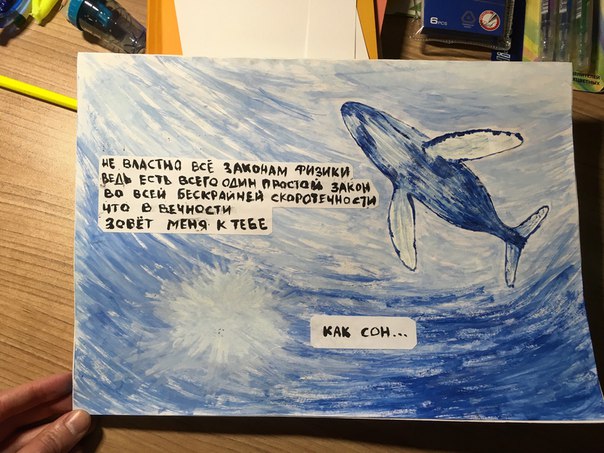 НЕ ВЛАСТНО ВСЁ ЗАКОНАМ ФИЗИКИ
ВЕДЬ ЕСТЬ ВСЕГО ОДИН ПРОСТОЙ ЗАКОН
ВО ВСЕЙ БЕСКРАЙНЕЙ СКОРОТЕЧНОСТИ
ЧТО В ВЕЧНОСТИ
ЗОВЁТ МЕНЯ К ТЕБЕ
КАК СОН...
6 PCS